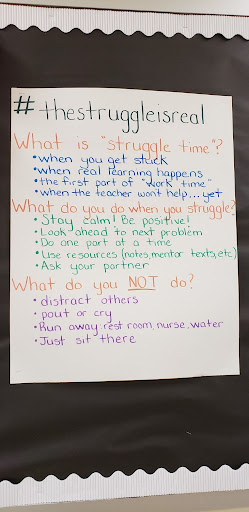 #thestruggleisreal
What is "struggle time"?
• when you get stuck
• when real learning happens
• the first part of "work time"
• when the teacher wont help...yet
What do you do when you struggle?
• Stay calm! Be positive!
• Look ahead to next problem
• Do one part at a time
• Use resources (notes, mentor texts, etc)
• Ask your partner
What do you NOT do?
• distract others
• pout or cry
• Run away: rest room, nurse, water
• Just sit there